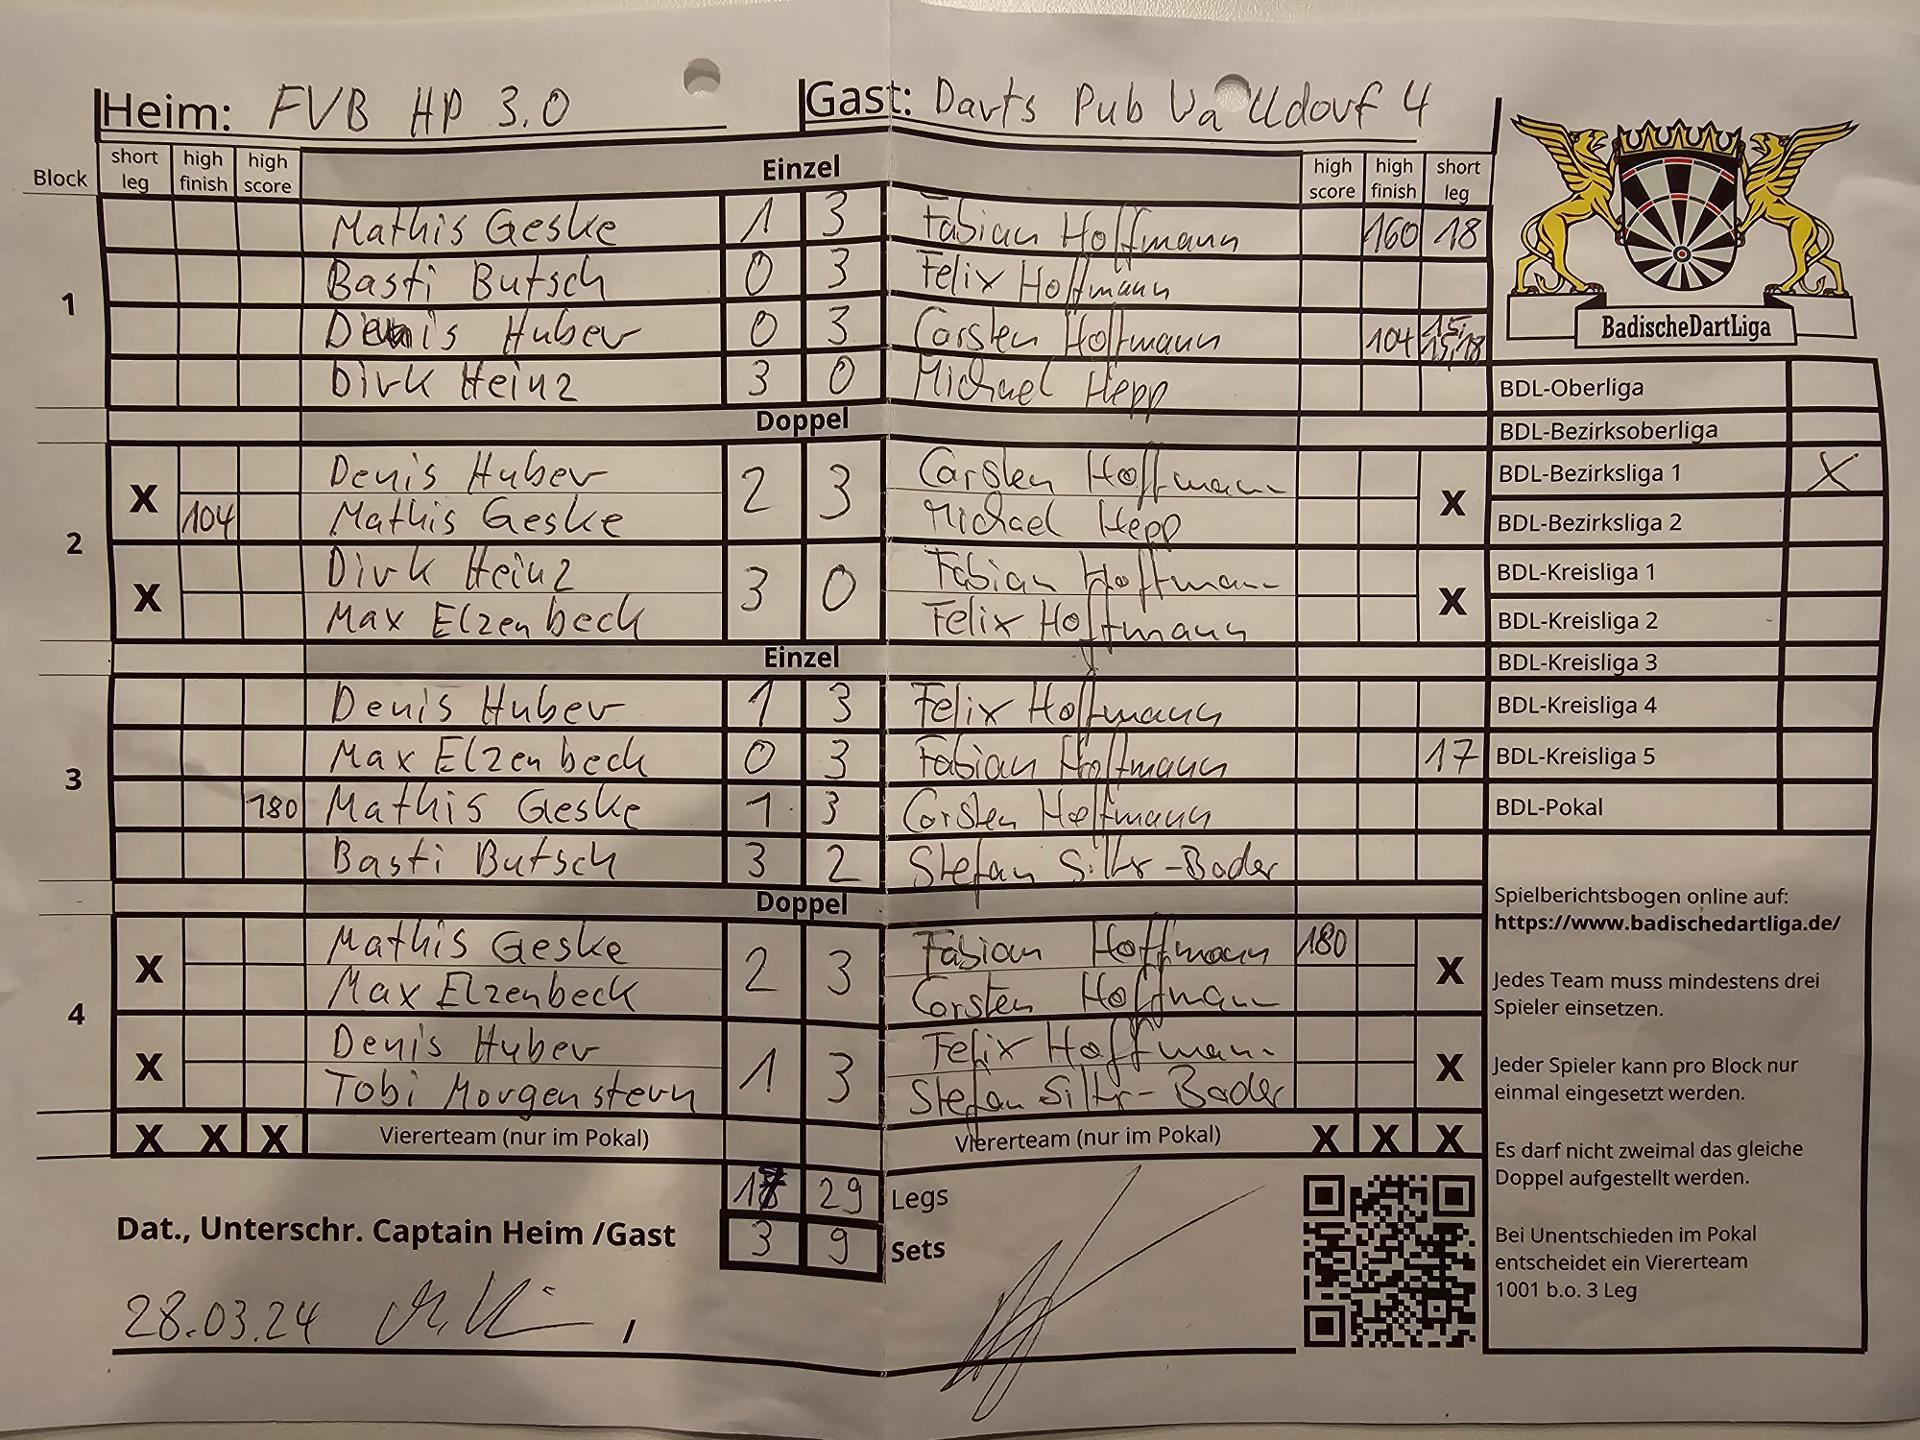 Heim: FVB HP 3.0 Gast: Darts Pub Walldorf 4
Block short leg high finish high score Einzel high score high finish short leg
1
Mathis Geske 1 3 Fabian Hoffmann 160 18
Basti Butsch 0 3 Felix Hoffmann
Denis Huber 0 3 Carsten Hoffmann 104 15, 15, 18
Dirk Heinz 3 0 Michael Hepp
Doppel
2
X Denis Huber 2 3 Carsten Hoffmann X
104 Mathis Geske Michael Hepp
X Dirk Heinz 3 0 Fabian Hoffmann X
Max Elzenbeck Felix Hoffmann
Einzel
3
Denis Huber 1 3 Felix Hoffmann
Max Elzenbeck 0 3 Fabian Hoffmann 17
180 Mathis Geske 1 3 Carsten Hoffmann
Basti Butsch 3 2 Stefan Siltr-Bader
Doppel
4
X Mathis Geske 2 3 Fabian Hoffmann 180 X
Max Elzenbeck Carsten Hoffmann
X Denis Huber 1 3 Felix Hoffmann X
Tobi Morgenstern Stefan Siltr-Bader
X X X Viererteam (nur im Pokal) Viererteam (nur im Pokal) X X X
29 Legs
3 9 Sets
Dat., Unterschr. Captain Heim /Gast
28.03.24
BadischeDartLiga
BDL-Oberliga
BDL-Bezirksoberliga
BDL-Bezirksliga 1 X
BDL-Bezirksliga 2
BDL-Kreisliga 1
BDL-Kreisliga 2
BDL-Kreisliga 3
BDL-Kreisliga 4
BDL-Kreisliga 5
BDL-Pokal
Spielberichtsbogen online auf:
https://www.badischedartliga.de/
Jedes Team muss mindestens drei
Spieler einsetzen.
Jeder Spieler kann pro Block nur
einmal eingesetzt werden.
Es darf nicht zweimal das gleiche
Doppel aufgestellt werden.
Bei Unentschieden im Pokal
entscheidet ein Viererteam
1001 b.o. 3 Leg